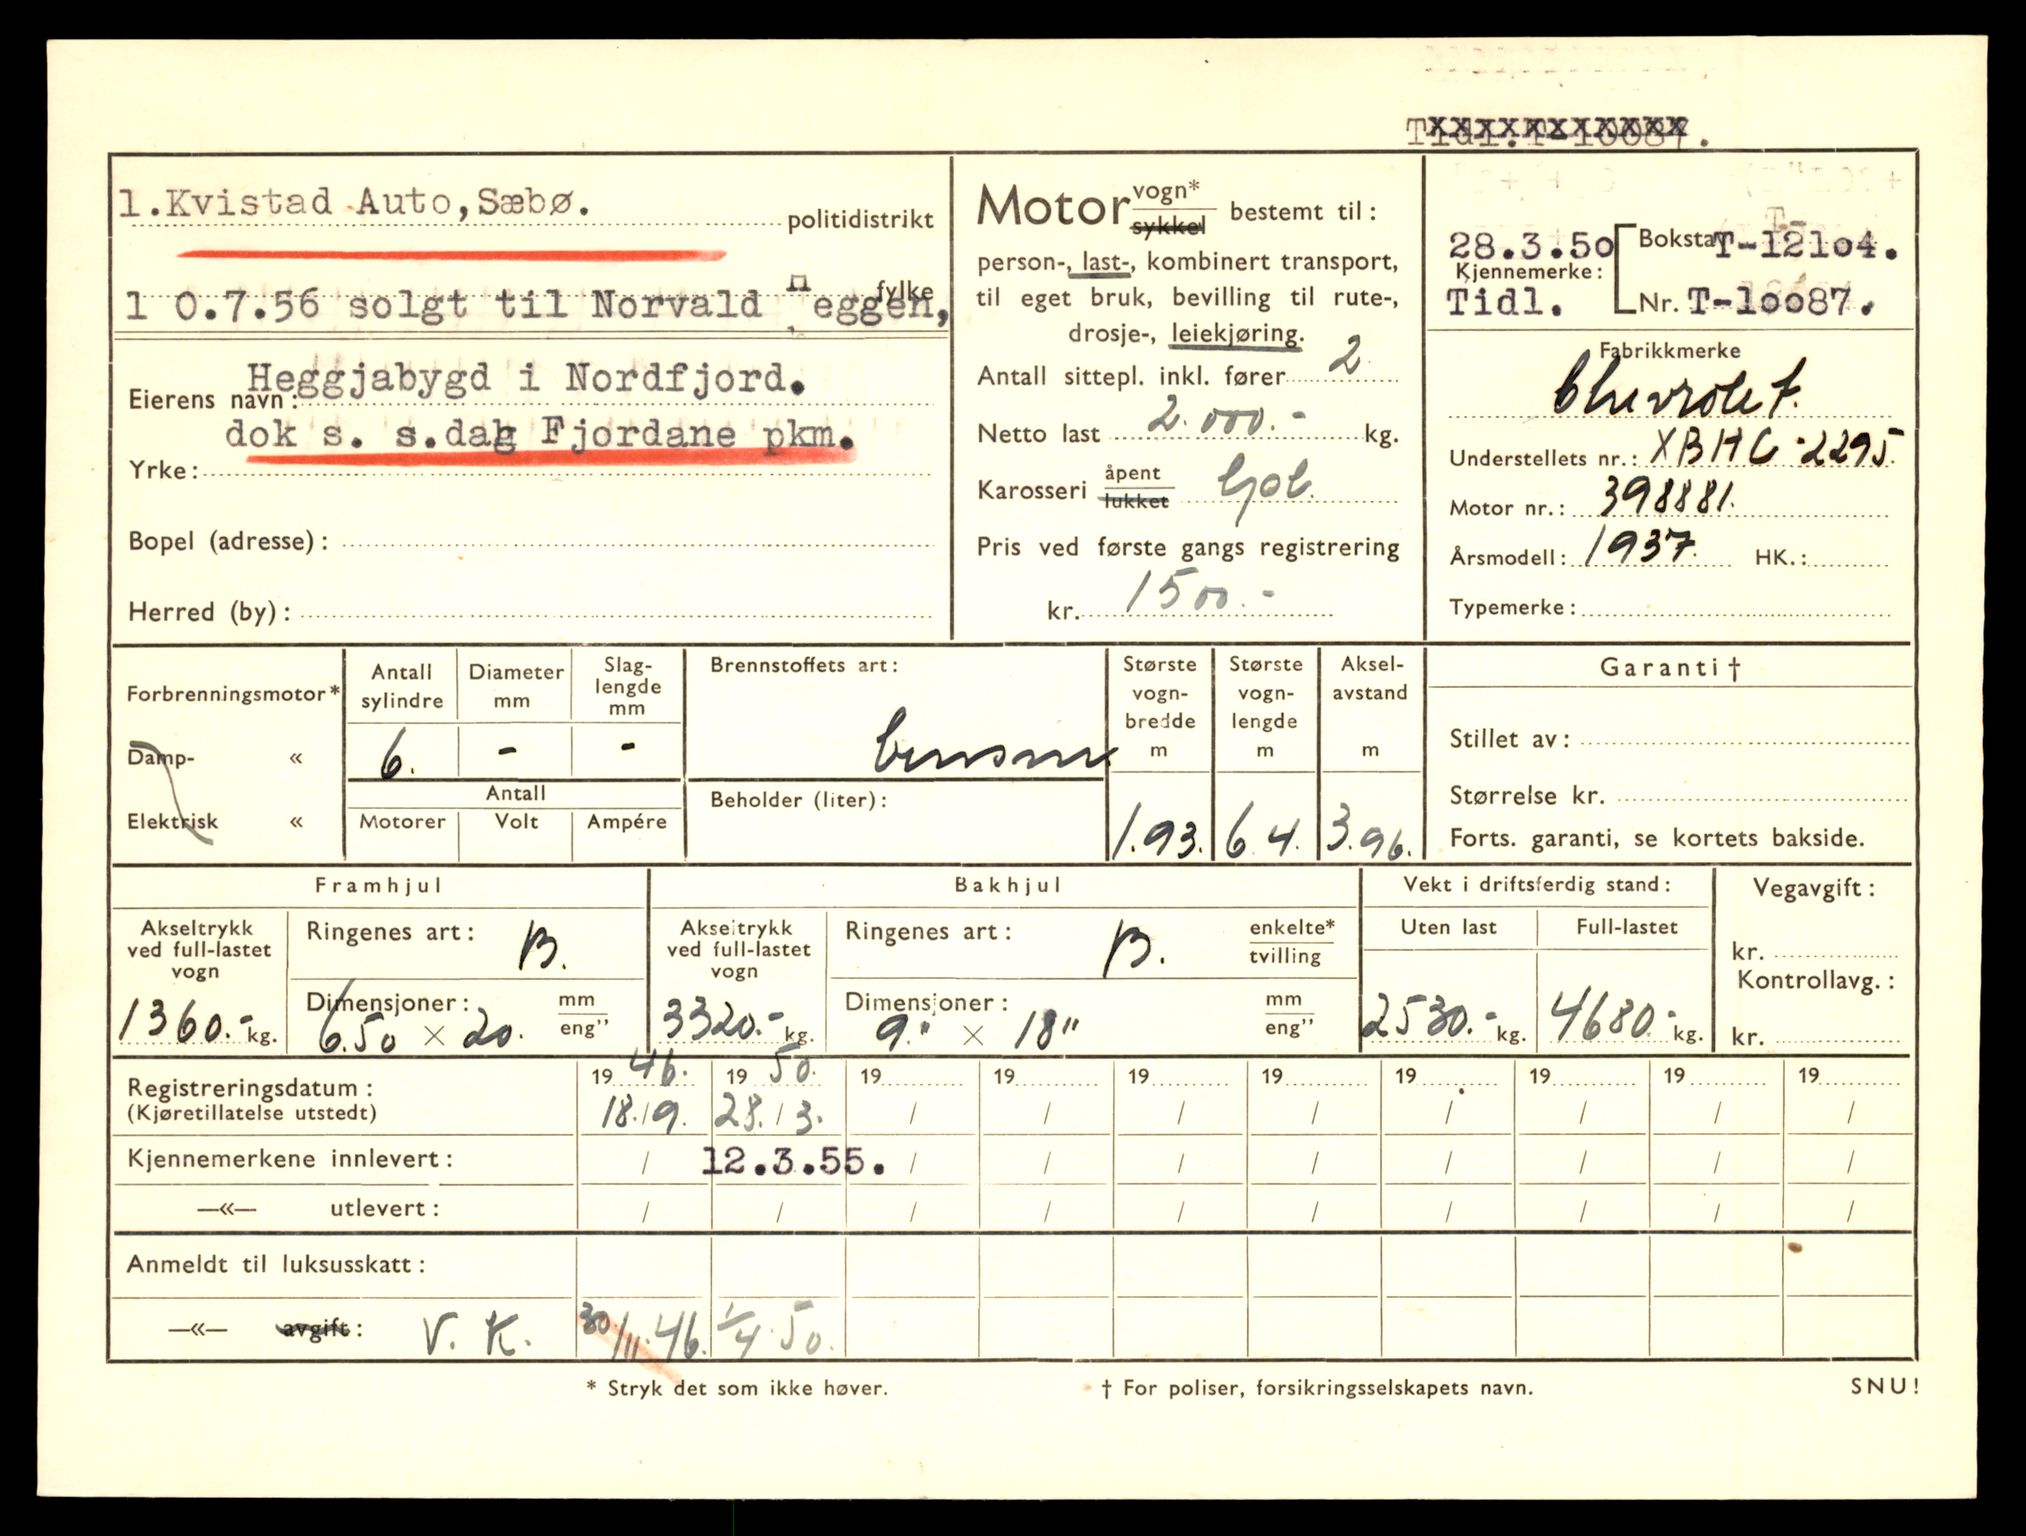 Tidl.T-10087.
1.Kvistad Auto,Sæbø. politidistrikt
1 0.7.56 solgt til Norvald eggen, fylke
Heggjabygd i Nordfjord.
Eierens navn:
dok s. s.dag Fjordane pkm.
Yrke:
Bopel (adresse):
Herred (by):
Motor vogn* sykkel bestemt til:
person-, last-, kombinert transport,
til eget bruk, bevilling til rute-,
drosje-, leiekjøring.
Antall sittepl. inkl. fører 2
Netto last 2.000.- kg.
Karosseri åpent lukket
Pris ved første gangs registrering
kr. 1500.-
28.3.50 Bokstav T-12104.
Kjennemerke:
Tidl. Nr. T-10087.
Fabrikkmerke
Chevrolet.
Understellets nr.: XBHC-2295
Motor nr.: 398881.
Årsmodell: 1937. HK.:
Typemerke:
Forbrenningsmotor*
Damp- «
Elektrisk «
Antall sylindre
6.
Diameter mm
-
Slag-lengde mm
-
Antall
Motorer Volt Ampére
Brennstoffets art:
bensin
Beholder (liter):
Største vogn-bredde m
1.93.
Største vogn-lengde m
6.4.
Aksel-avstand m
3.96.
Garanti†
Stillet av:
Størrelse kr.
Forts. garanti, se kortets bakside.
Framhjul
Akseltrykk ved full-lastet vogn
1360.- kg.
Ringenes art: B.
Dimensjoner: mm eng"
6.50 × 20.
Bakhjul
Akseltrykk ved full-lastet vogn
3320.- kg.
Ringenes art: B. enkelte* tvilling
Dimensjoner: mm eng"
9." × 18"
Vekt i driftsferdig stand:
Uten last Full-lastet
2530.- kg. 4680.- kg.
Vegavgift:
kr.
Kontrollavg.:
kr.
Registreringsdatum: 1946. 1950. 19 19 19 19 19 19 19 19
(Kjøretillatelse utstedt) 18./9. 28./3. / / / / / / / /
Kjennemerkene innlevert: / 12.3.55. / / / / / / / /
—«— utlevert: / / / / / / / / / /
Anmeldt til luksusskatt:
—«— avgift: V. K. 30/11.46. 1/4.50.
* Stryk det som ikke høver. † For poliser, forsikringsselskapets navn. SNU!